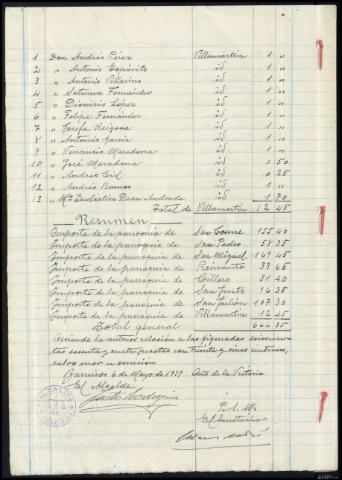 1 Don Andrés Pérez Villamartín 1 "
2 " Antonio Expósito id 1 "
3 " Antonio Villarino id 1 "
4 " Saturna Fernández id 1 "
5 " Dionisio López id 1 "
6 " Felipe Fernández id 1 "
7 " Josefa Reigosa id 1 "
8 " Antonio García id 1 "
9 " Venancio Maradona id 1 "
10 " José Maradona id 1 50
11 " Andrés Cid id 0 25
12 " Andrés Ramos id 1 "
13 " Mª Eudosia Dean Andrade id 1 70
Total de Villamartín 12 45
Resumen
Importe de la parroquia de San Cosme 155 40
Importe de la parroquia de San Pedro 58 35
Importe de la parroquia de San Miguel 169 45
Importe de la parroquia de Reinante 33 65
Importe de la parroquia de Cillero 31 40
Importe de la parroquia de San Justo 96 35
Importe de la parroquia de San Julián 107 30
Importe de la parroquia de Villamartín 12 45
Total general 664 35
Asciende la anterior relación a las figuradas seiscien-
tas sesenta y cuatro pesetas con treinta y cinco céntimos,
salvo error u omisión
Barreiros 6 de Mayo de 1939. Año de la Victoria
El Alcalde P. S. M.
El Secretario